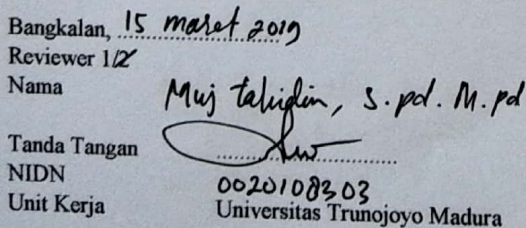 Bangkalan, 15 maret 2019
Reviewer 1/2
Nama Muj tahidin, S.pd. M.pd
Tanda Tangan
NIDN 0020108303
Unit Kerja Universitas Trunojoyo Madura